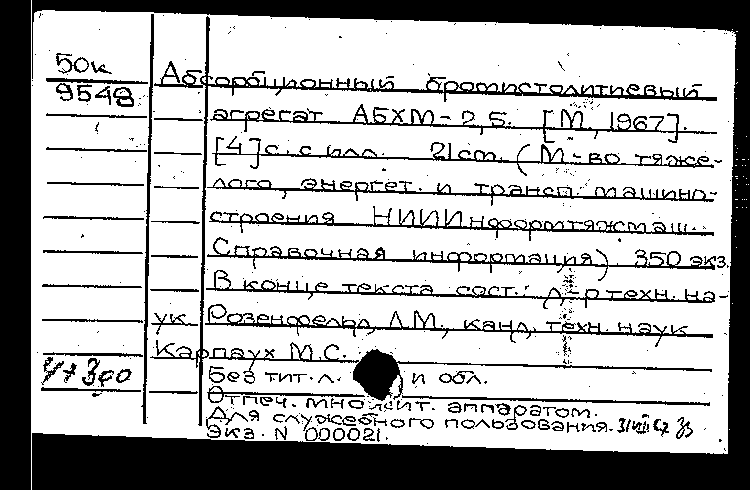 50к
9549
Абсорбционный бромистолитиевый
агрегат АБХМ-2,5. [М., 1967].
[4] с. с илл. 21 см. (М-во тяже-
лого, энергет. и трансп. машино-
строения НИИИнформтяжмаш.
Справочная информация). 350 экз.
В конце текста сост.: д-р техн. на-
ук Розенфельд, Л.М., канд. техн. наук
Карпаух М.С.
Без тит. л. и обл.
Отпеч. множит. аппаратом.
Для служебного пользования.
Экз. N 000021.